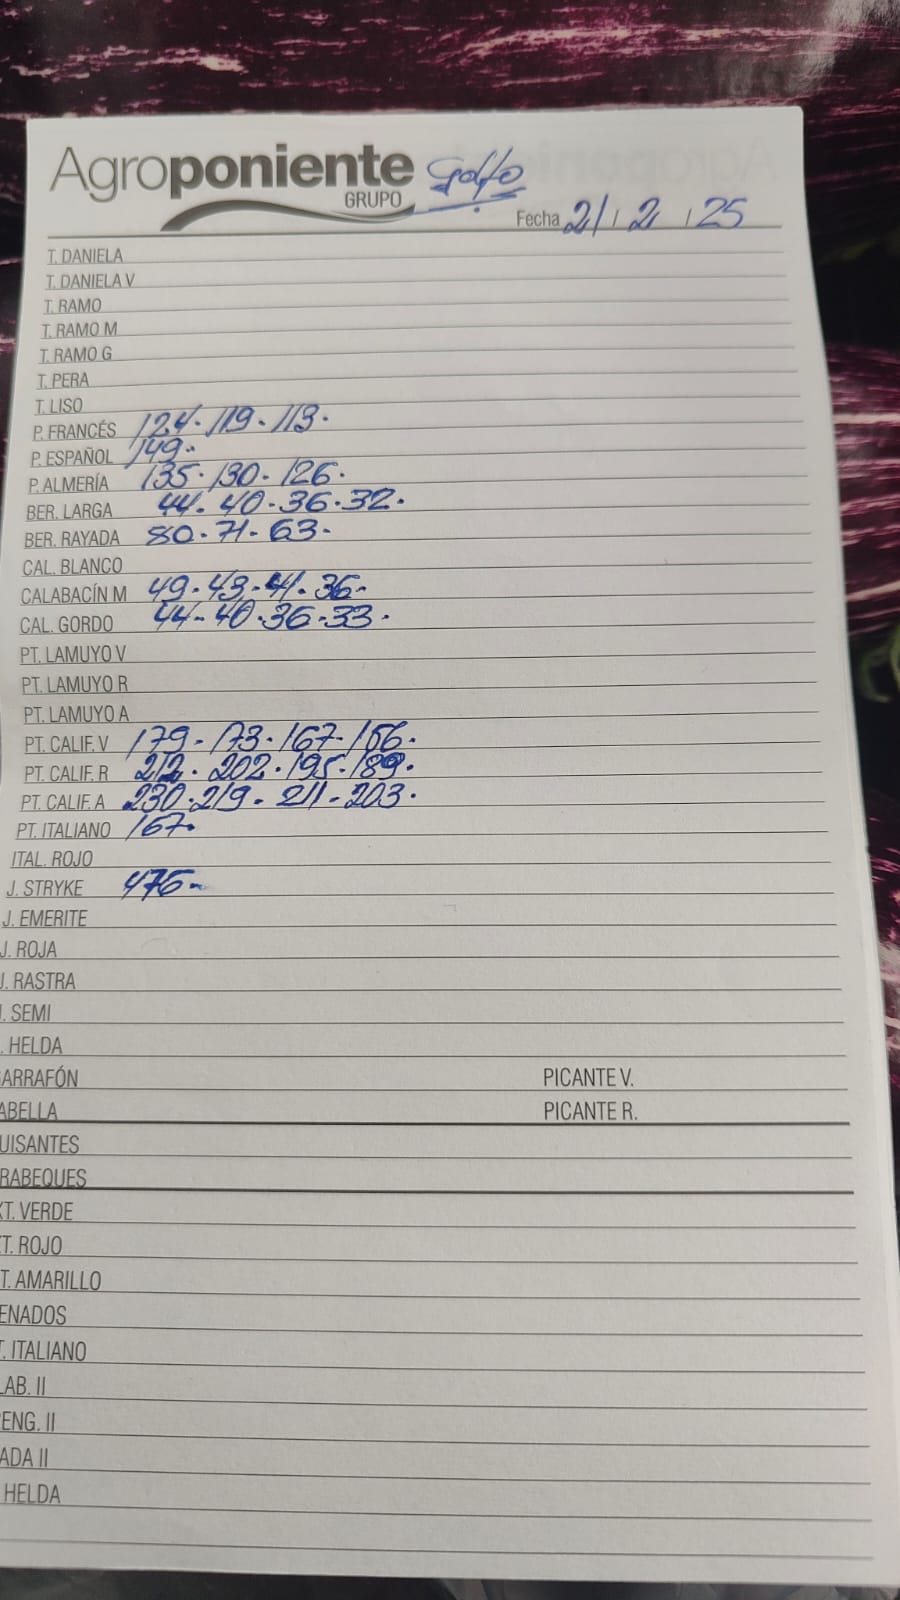 Agroponiente Golfo
GRUPO
Fecha 21 / 2 / 25
T. DANIELA
T. DANIELA V
T. RAMO
T. RAMO M
T. RAMO G
T. PERA
T. LISO
P. FRANCÉS 124. 119. 113.
P. ESPAÑOL 149.
P. ALMERÍA 135. 130. 126.
BER. LARGA 44. 40. 36. 32.
BER. RAYADA 80. 71. 63.
CAL. BLANCO
CALABACÍN M 49. 43. 41. 36.
CAL. GORDO 44. 40. 36. 33.
PT. LAMUYO V
PT. LAMUYO R
PT. LAMUYO A
PT. CALIF. V 179. 173. 167. 156.
PT. CALIF. R 212. 202. 195. 189.
PT. CALIF. A 230. 219. 211. 203.
PT. ITALIANO 167.
ITAL. ROJO
J. STRYKE 476.
J. EMERITE
J. ROJA
J. RASTRA
J. SEMI
. HELDA
GARRAFÓN PICANTE V.
ABELLA PICANTE R.
UISANTES
RABEQUES
XT. VERDE
T. ROJO
T. AMARILLO
ENADOS
T. ITALIANO
LAB. II
ENG. II
ADA II
HELDA